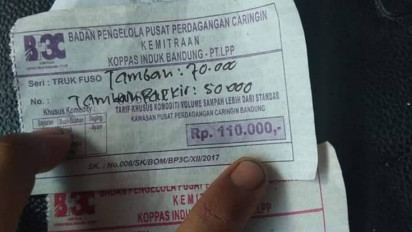 BP3C
BADAN PENGELOLA PUSAT PERDAGANGAN CARINGIN
KEMITRAAN
KOPPAS INDUK BANDUNG - PT.LPP
Seri : TRUK FUSO Tambah : 70.000
No. : Tambah Parkir : 50000
Khusus Komoditi
TARIF KHUSUS KOMODITI VOLUME SAMPAH LEBIH DARI STANDAR
KAWASAN PUSAT PERDAGANGAN CARINGIN BANDUNG
Rp. 110.000,-
SK. : No.008/SK/BOM/BP3C/XII/2017
BADAN PENGELOLA PUSAT
KOPPAS INDUK
LPP